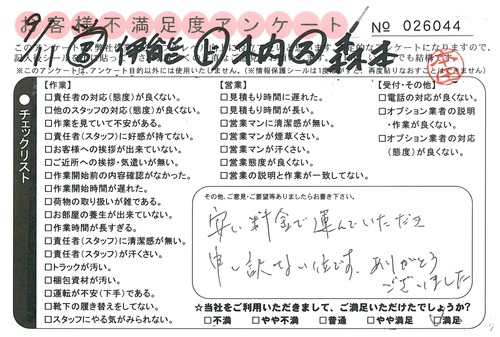 お客様不満足度アンケート
№ 026044
9/11 伊能 森本
※このアンケートは、アンケート目的以外には使用いたしません。
チェックリスト
【作業】
□責任者の対応(態度)が良くない。
□他のスタッフの対応(態度)が良くない。
□作業を見ていて不安がある。
□責任者(スタッフ)に好感が持てない。
□お客様への挨拶が出来ていない。
□ご近所への挨拶・気遣いが無い。
□作業開始前の内容確認がなかった。
□作業開始時間が遅れた。
□荷物の取り扱いが雑である。
□お部屋の養生が出来ていない。
□作業時間が長すぎる。
□責任者(スタッフ)に清潔感が無い。
□責任者(スタッフ)が汗くさい。
□トラックが汚い。
□梱包資材が汚い。
□運転が不安(下手)である。
□靴下の履き替えをしてない。
□スタッフにやる気がみられない。
【営業】
□見積もり時間に遅れた。
□見積もり時間が長い。
□営業マンに清潔感が無い。
□営業マンが煙草くさい。
□営業マンが汗くさい。
□営業態度が良くない。
□営業の説明と作業が一致してない。
【受付・その他】
□電話の対応が良くない。
□オプション業者の説明
・作業が良くない。
□オプション業者の対応
(態度)が良くない。
その他、ご意見・ご要望等ありましたらお書き下さい。
安い料金で運んでいただき
申し訳ない位です。ありがとう
ございました
☆当社をご利用いただきまして、ご満足いただけたでしょうか?
□不満 □やや不満 □普通 □やや満足 □満足